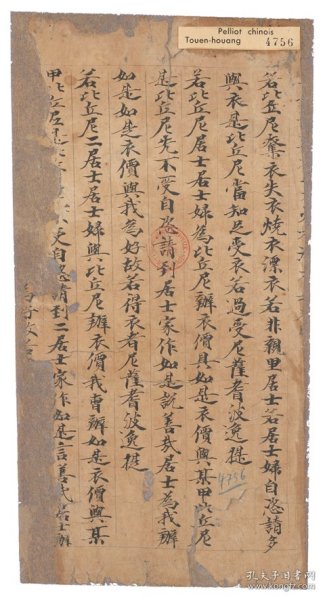 Pelliot chinois
Touen-houang 4756
若比丘尼奪衣失衣燒衣漂衣若非親里居士若居士婦自恣請多
與衣是比丘尼當知足受衣若過受尼薩耆波逸提
4756
若比丘尼居士居士婦為比丘尼辦衣價具如是衣價與某甲比丘尼
是比丘尼先不受自恣請到居士家作如是說善哉居士為我辦
如是如是衣價與我為好故若得衣者尼薩耆波逸提
若比丘尼二居士居士婦與比丘尼辦衣價我曹辦如是衣價與某
甲比丘尼是比 受自恣請到二居士家作如是言善哉居士辦
為好故若
孔夫子旧书网